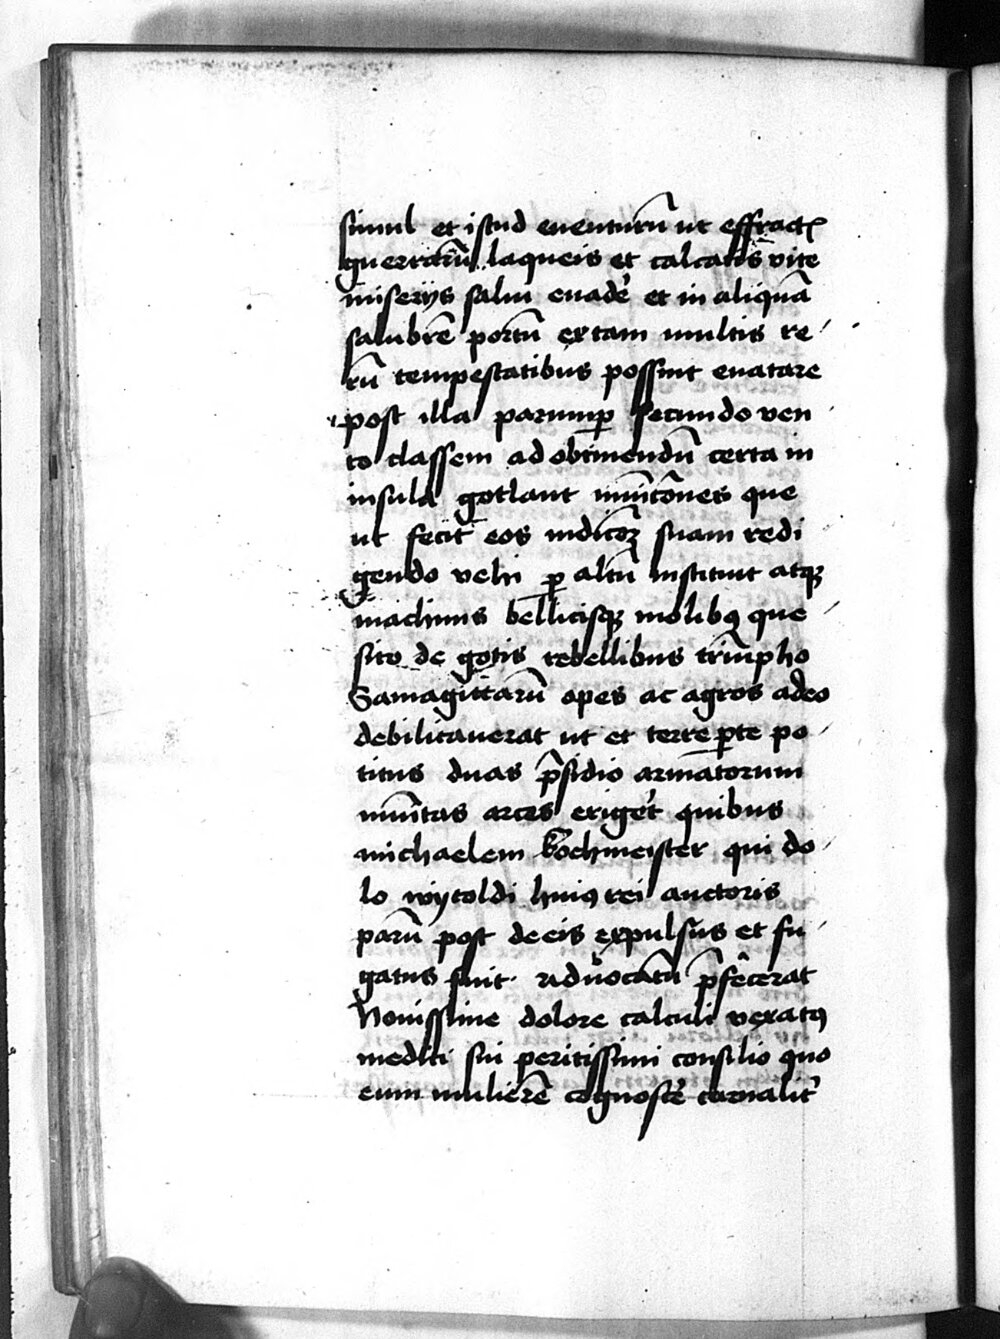 simul et istud euenturū ut effractꝭ
guerrarū laqueis et calcatis vite
miseriis salui euadē et in aliquā
salubrē portū ex tam multis re
rū tempestatibus possint enatare
post illa parumꝑ secundo ven
to classem ad obtinendū certa in
insula gotlant munitōnes que
ut fecit eos indicōꝫ suam redi
gendo velit ꝑ altū instituit atqꝫ
machinis bellicisqꝫ molibꝯ que
sito de gotis rebellibus triūmpho
Samagittarū opes ac agros adeo
debilitauerat ut et terre ꝑte po
titus duas p̄sidio armatorum
munitas arces erigēt quibus
michaelem kochmeister qui do
lo wytoldi huiꝯ rei auctoris
parū post de eis expulsus et fu
gatus fuit aduocatū p̄fēcerat
Nouissime dolore calculi vexatꝯ
medici sui peritissimi consilio quo
eum mulierē cognoscē carnalit̄